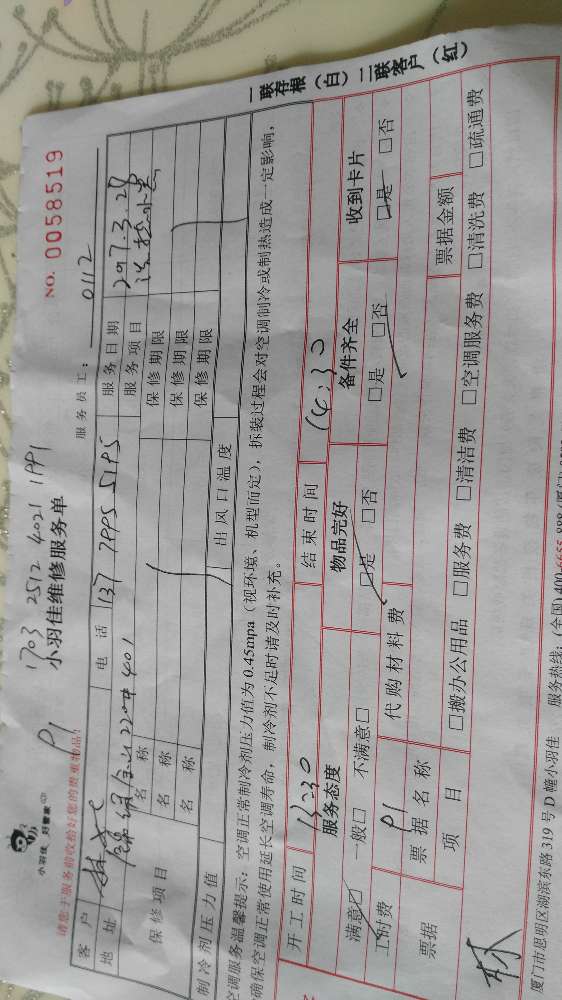 小羽佳 好管家
P1 1703 2512 4021 1991
小羽佳维修服务单
NO. 0058519
请您于服务前收拾好您的贵重物品!
服务员工: 0112
客户 电话 137 7995 5195 服务日期 2017.3.29
地址 22# 401 服务项目
保修项目 名称 保修期限
名称 保修期限
名称 保修期限
制冷剂压力值 出风口温度
空调服务温馨提示: 空调正常制冷剂压力值为0.45mpa (视环境、机型而定), 拆装过程会对空调制冷或制热造成一定影响,
确保空调正常使用延长空调寿命, 制冷剂不足时请及时补充。
开工时间 13:30 结束时间 14:30
服务态度 物品完好 备件齐全 收到卡片
满意□ 一般□ 不满意□ □是 □否 □是 □否 □是 □否
工时费 P1 代购材料费
票据 票据名称 票据金额
项目 □搬办公用品 □服务费 □清洁费 □空调服务费 □清洗费 □疏通费
一联存根 (白) 二联客户 (红)
厦门市思明区湖滨东路319号D幢小羽佳 服务热线: (全国)400-6655-888